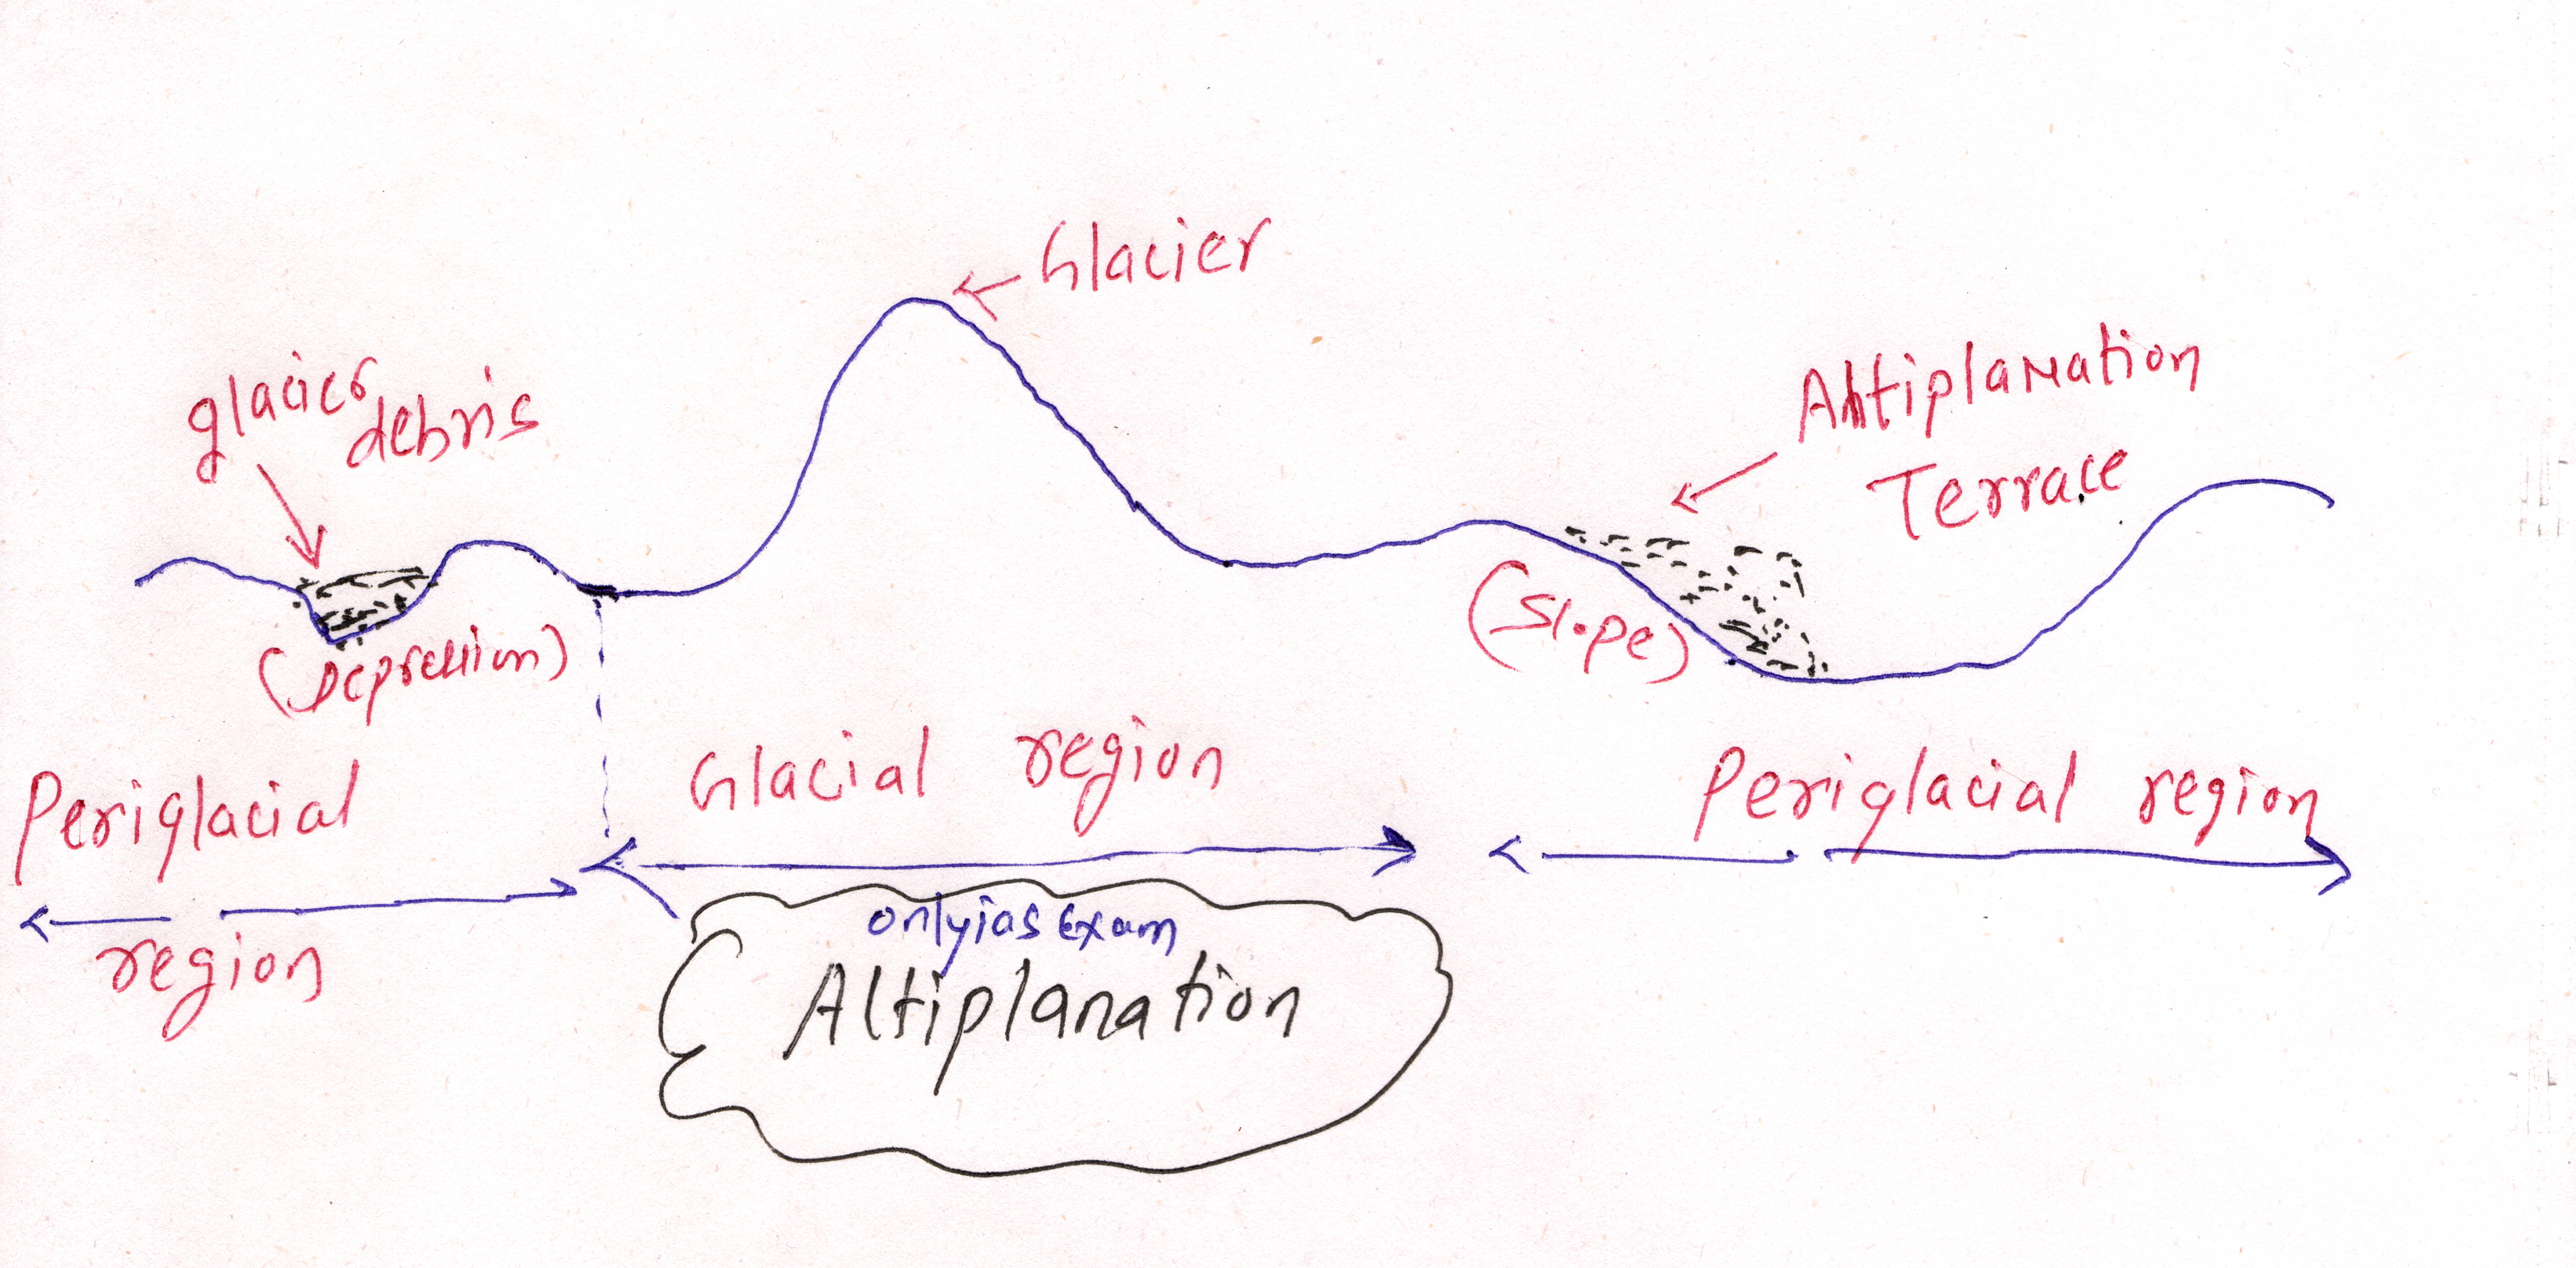 Glacier
glacier
debris
Altiplanation
Terrace
(Depression)
(Slope)
Glacial region
Periglacial region
Periglacial
region
onlyias Exam
Altiplanation